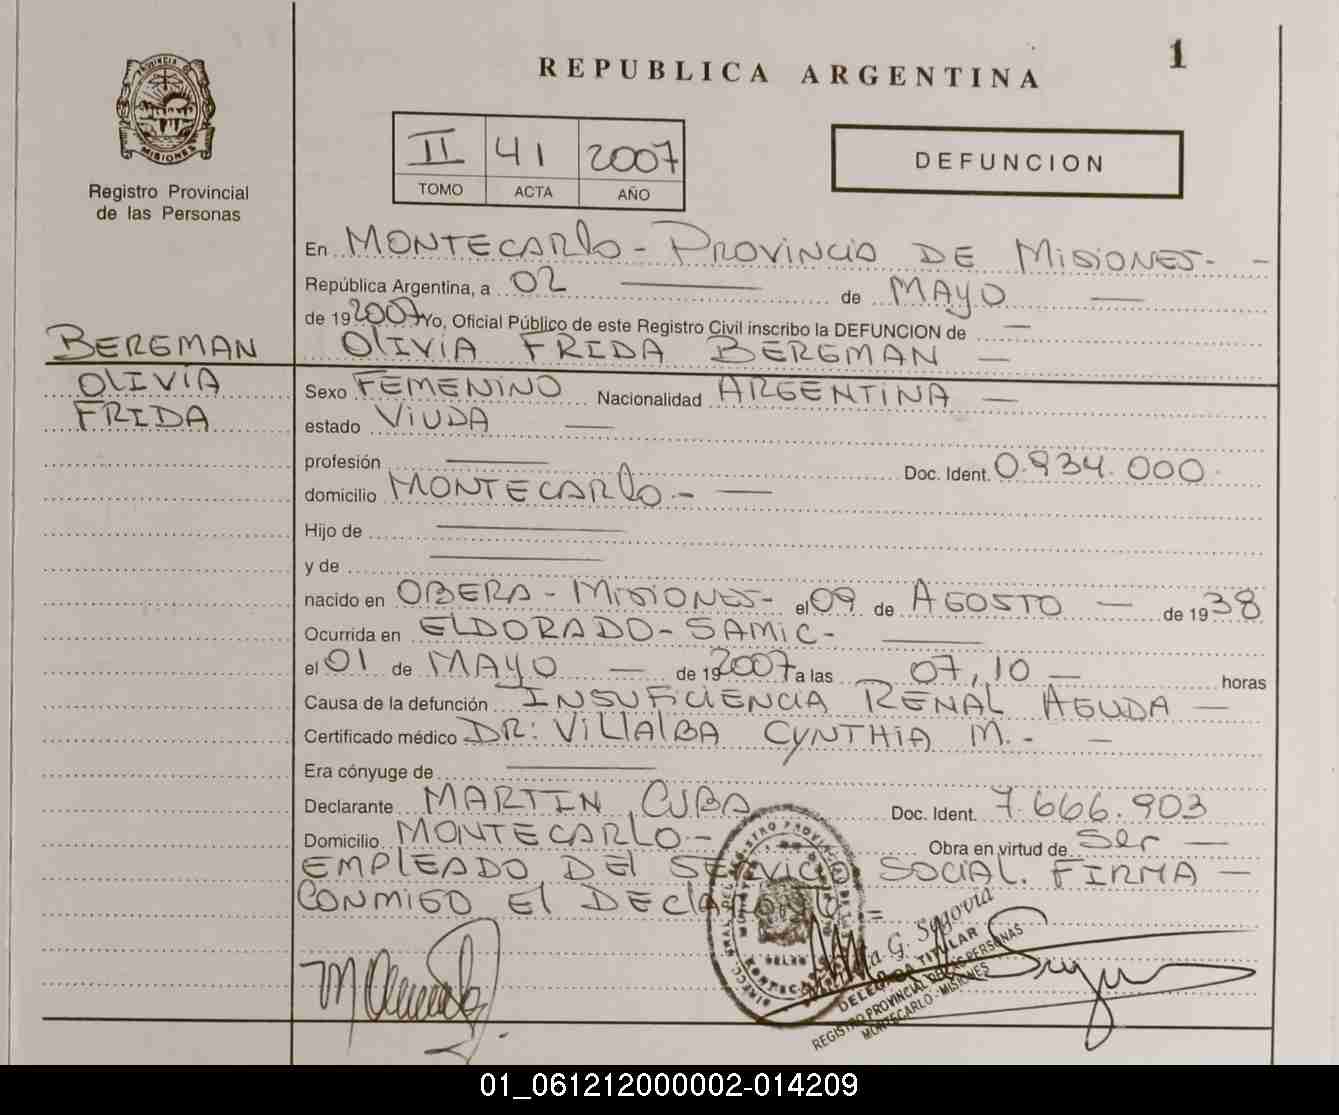 REPUBLICA ARGENTINA
1
PROVINCIA
MISIONES
Registro Provincial
de las Personas
II 41 2007
TOMO ACTA AÑO
DEFUNCION
En MONTECARlo - PROVINCIA DE MISIONES - -
República Argentina, a 02 — de MAYO —
de 192007 Yo, Oficial Público de este Registro Civil inscribo la DEFUNCION de —
BERGMAN OlIVIA FRIDA BERGMAN —
OlIVIA
FRIDA
Sexo FEMENINO Nacionalidad ARGENTINA —
estado VIUDA —
profesión — Doc. Ident. 0.934.000
domicilio MONTECARlo.- —
Hijo de —
y de —
nacido en OBERA - MISIONES - el 09 de AGOSTO — de 1938
Ocurrida en ELDORADO - SAMIC - —
el 01 de MAYO — de 192007 a las 07,10 — horas
Causa de la defunción INSUFICIENCIA RENAL AGUDA —
Certificado médico DR: VIllAlBA CYNTHIA M. - —
Era cónyuge de —
Declarante MARTIN CUBA Doc. Ident. 7.666.903
Domicilio MONTECARLO - Obra en virtud de Ser —
EMPLEADO DEl SERVICIO SOCIAL. FIRMA —
CONMIGO El DEClARANTE =
G. Segovia
DELEGADA TITULAR
REGISTRO PROVINCIAL DE LAS PERSONAS
MONTECARLO - MISIONES
01_061212000002-014209